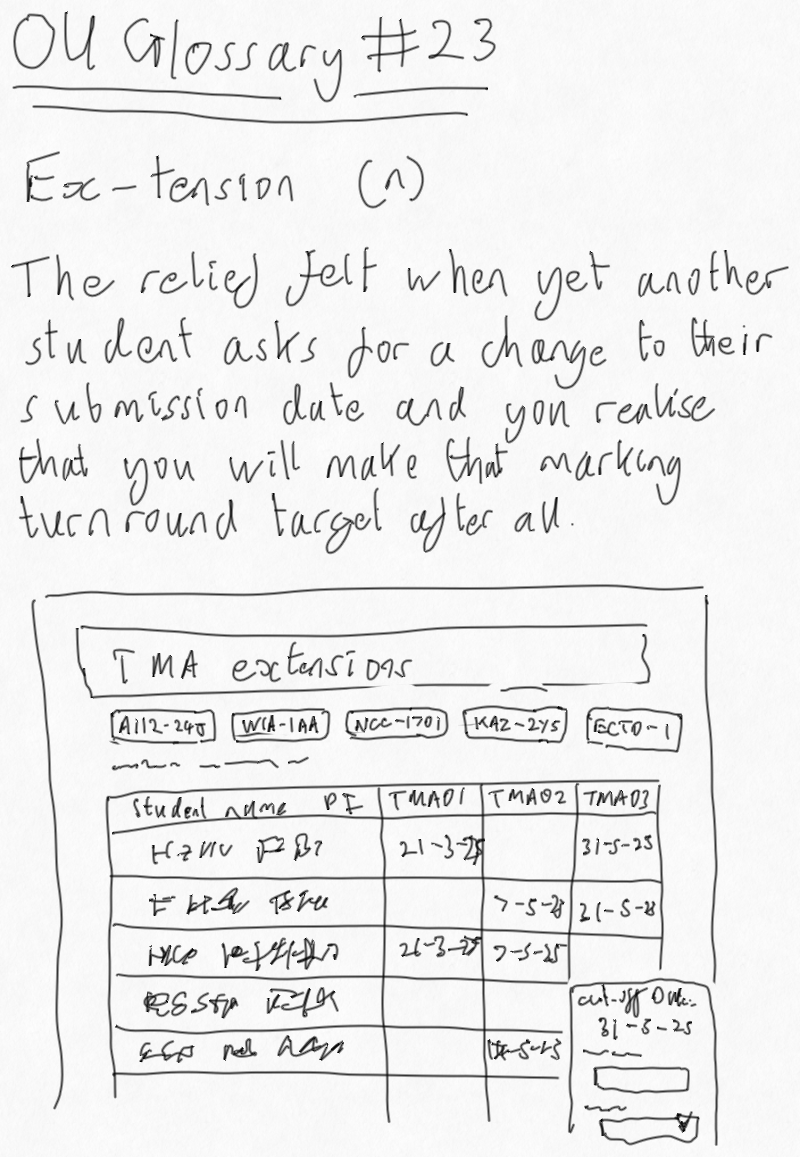 OU Glossary #23
Ex-tension (n)
The relief felt when yet another
student asks for a change to their
submission date and you realise
that you will make that marking
turn round target after all.
TMA extensions
A112-24J WIA-1AA NCC-1701 KAZ-2Y5 ECTO-1
Student name PI TMA01 TMA02 TMA03
21-3-25 31-5-25
7-5-25 21-5-25
26-3-25 7-5-25
cut-off Date:
31-5-25